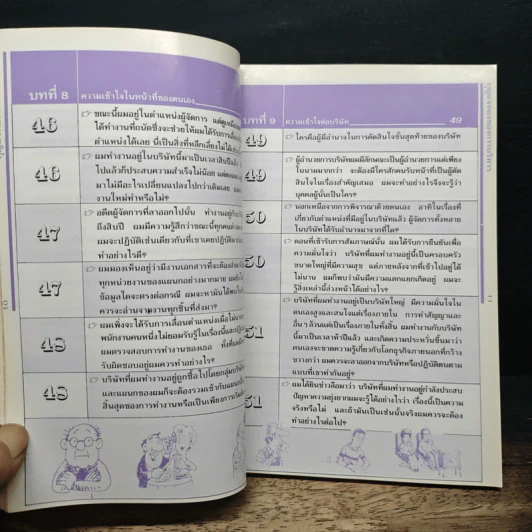 บทที่ 8
ความเข้าใจในหน้าที่ของตนเอง
46
ขณะนี้ผมอยู่ในตำแหน่งผู้จัดการ
ได้ทำงานที่ถนัดซึ่งจะช่วยให้ผมได้รับการเลื่อน
ตำแหน่งได้เลย นี่เป็นสิ่งที่หลีกเลี่ยงไม่ได้
46
ผมทำงานอยู่ในบริษัทนี้มาเป็นเวลาสิบปี
ไปแล้วก็ประสบความสำเร็จไม่น้อย
มาไม่มีอะไรเปลี่ยนแปลงไปกว่าเดิมเลย
งานใหม่ทำหรือไม่?
47
อดีตผู้จัดการที่ลาออกไปนั้น
ถึงสิบปี ผมมีความรู้สึกว่าขณะนี้ทุกคน
ผมจะปฏิบัติเช่นเดียวกับที่เขาเคยปฏิบัติ
อย่างไรดี?
47
ผมมองเห็นอยู่ว่ามีงานเอกสารที่จะต้อง
ทุกหน่วยงานของแผนกอย่างมากมาย
ข้อมูลใดจะตรงต่อกรณี ผมจะหามันได้
ควรจะอ่านจากงานทุกชิ้นที่ส่งมา?
48
ผมเพิ่งจะได้รับการเลื่อนตำแหน่งเมื่อไม่นาน
พนักงานคนหนึ่งไม่ยอมรับรู้ในเรื่องนี้
ผมตรวจสอบการทำงานของเธอ
รับผิดชอบอยู่ผมควรทำอย่างไร?
48
บริษัทที่ผมทำงานอยู่ถูกซื้อไปโดยกลุ่มบริษัท
และแผนกของผมก็จะต้องรวมเข้ากับแผนกอื่น
สิ้นสุดของการทำงานหรือเป็นเพียงการเริ่ม
10
บทที่ 9
ความเข้าใจต่อบริษัท
49
49
ใครคือผู้มีอำนาจในการตัดสินใจขั้นสุดท้ายของบริษัท
49
ผู้อำนวยการบริษัทผมมีลักษณะเป็นผู้อำนวยการแต่เพียง
ในนามมากกว่า จะต้องมีใครสักคนรับหน้าที่เป็นผู้ตัด
สินใจในเรื่องสำคัญเสมอ ผมจะทำอย่างไรจึงจะรู้ว่า
บุคคลผู้นั้นเป็นใคร?
50
นอกเหนือจากการพิจารณาด้วยตนเอง อาทิในเรื่องที่
เกี่ยวกับตำแหน่งที่มีอยู่ในบริษัทแล้ว ผู้จัดการทั้งหลาย
ในบริษัทได้รับอำนาจมาจากที่ใด?
50
ตอนที่เข้ารับการสัมภาษณ์นั้น ผมได้รับการยืนยันเพื่อ
ความมั่นใจว่า บริษัทที่ผมทำงานอยู่นี้เป็นครอบครัว
ขนาดใหญ่ที่มีความสุข แต่ภายหลังจากที่เข้าไปอยู่ได้
ไม่นาน ผมก็พบว่ามันมีความแตกแยกเกิดอยู่ ผมจะ
รู้สิ่งเหล่านี้ล่วงหน้าได้อย่างไร?
51
บริษัทที่ผมทำงานอยู่เป็นบริษัทใหญ่ มีความมั่นใจใน
ตนเองสูงและสนใจแต่เรื่องภายใน การทำสัญญาและ
อื่น ๆ ล้วนแต่เป็นเรื่องภายในทั้งสิ้น ผมทำงานกับบริษัท
นี้มาเป็นเวลาห้าปีแล้ว และเกิดความประหวั่นขึ้นมาว่า
ตนเองจะขาดความรู้เกี่ยวกับโลกธุรกิจภายนอกที่กว้าง
ขวางกว่า ผมควรจะลาออกจากบริษัทหรือปฏิบัติตนตาม
แบบที่เขาทำกันอยู่?
51
ผมได้ยินข่าวลือมาว่า บริษัทที่ผมทำงานอยู่กำลังประสบ
ปัญหาความยุ่งยากผมจะรู้ได้อย่างไรว่า เรื่องนี้เป็นความ
จริงหรือไม่ และถ้ามันเป็นเช่นนั้นจริงผมควรจะต้อง
ทำอย่างไรต่อไป?
11